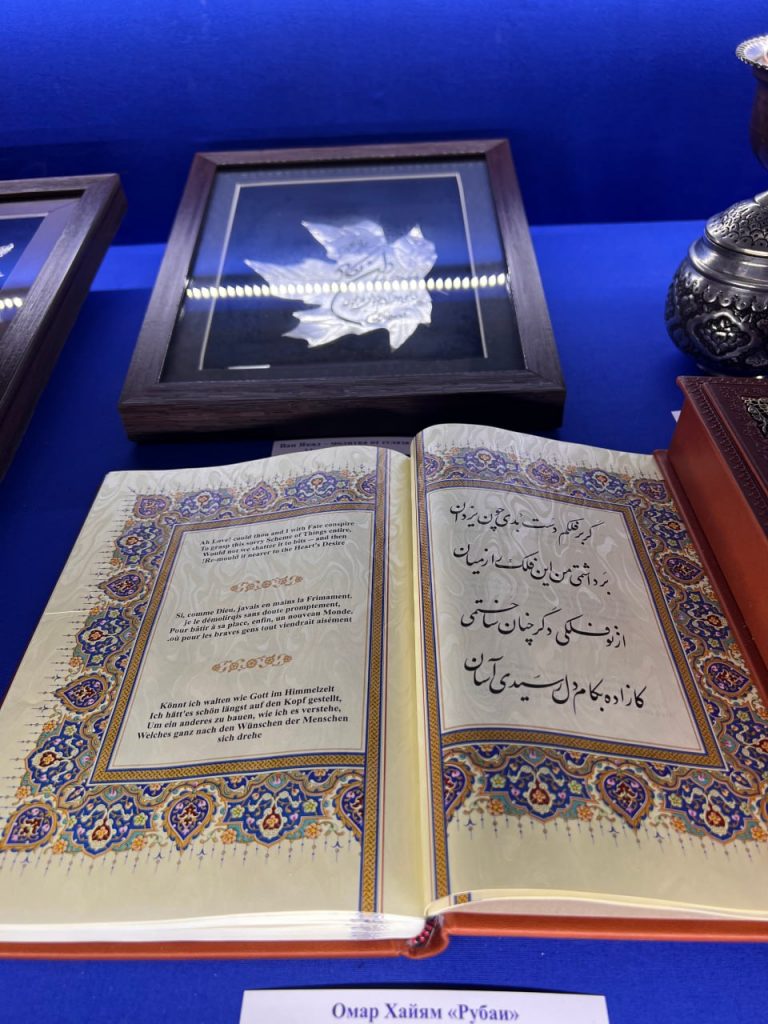 Ah Love! could thou and I with Fate conspire
To grasp this sorry Scheme of Things entire,
Would not we chatter it to bits — and then
!Re-mould it nearer to the Heart's Desire
Si, comme Dieu, javais en mains la Frimament.
je le démolirqis sans doute promptement,
Pour bâtir à sa place, enfin, un nouveau Monde.
.où pour les braves gens tout viendrait aisément
Könnt ich walten wie Gott im Himmelzelt
Ich hätt'es schön längst auf den Kopf gestellt,
Um ein anderes zu bauen, wie ich es verstehe,
Welches ganz nach den Wünschen der Menschen
sich drehe
گر بر فلکم دست بدی چون یزدان
برداشتمی من این فلک را ز میان
از نو فلکی دگر چنان ساختمی
کازاده بکام دل رسیدی آسان
Омар Хайям «Рубаи»